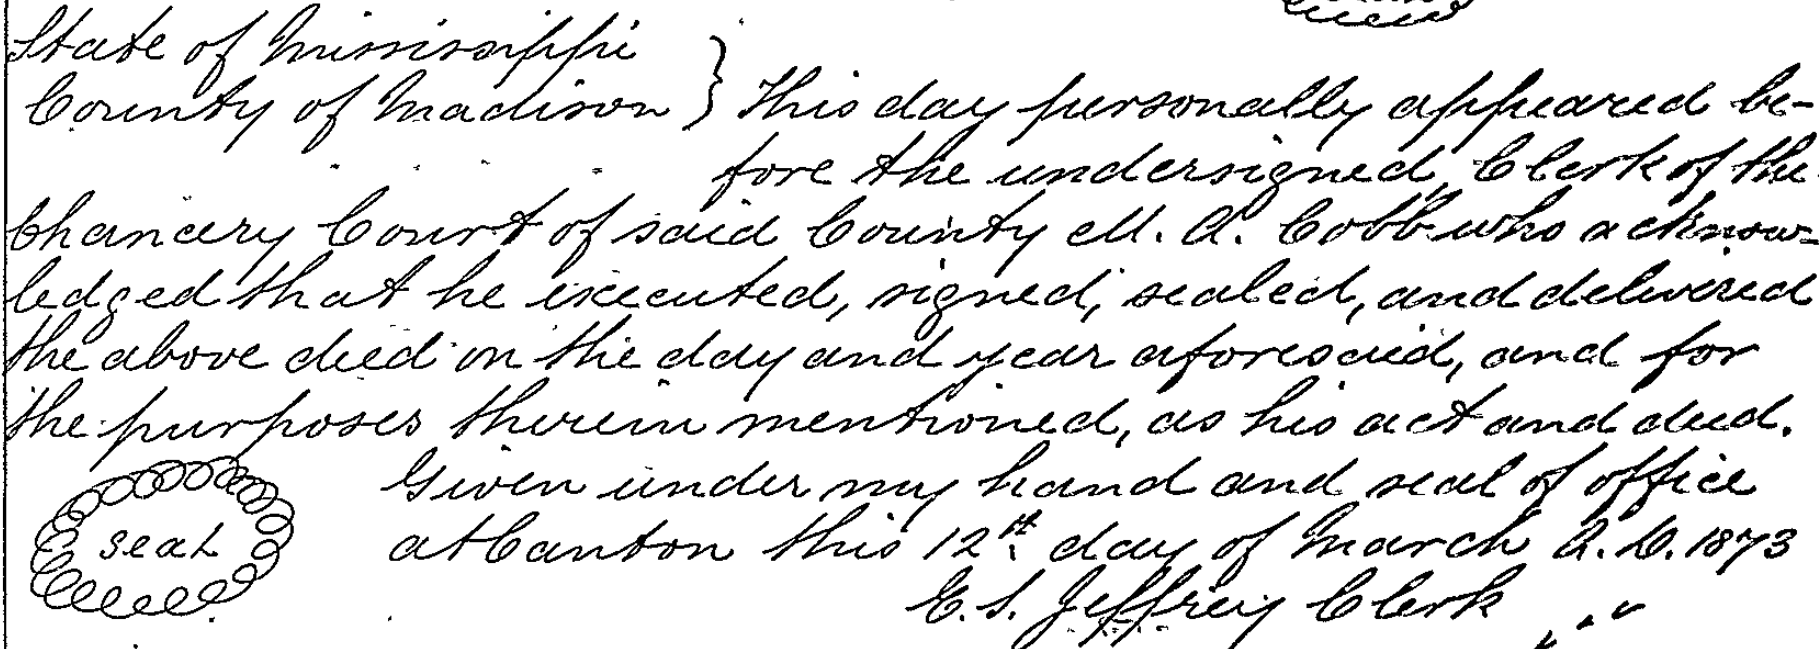 State of Mississippi
County of Madison } This day personally appeared be-
fore the undersigned, Clerk of the
Chancery Court of said County M. A. Cobb who acknow-
ledged that he executed, signed, sealed, and delivered
the above deed on the day and year aforesaid, and for
the purposes therein mentioned, as his act and deed.
Given under my hand and seal of office
seal at Canton this 12th day of March A.D. 1873
E. S. Jeffrey Clerk